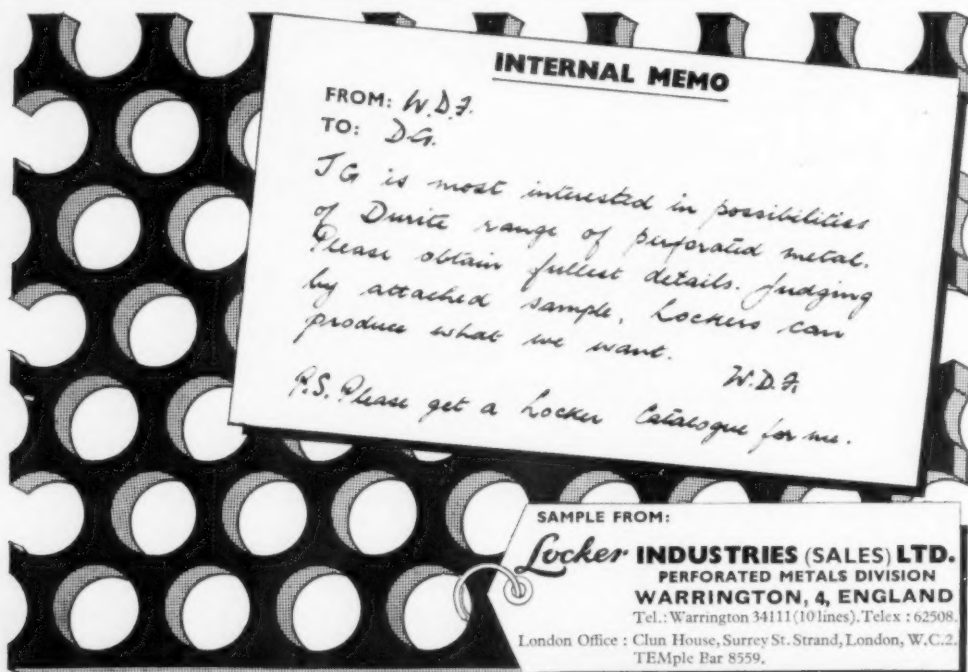 INTERNAL MEMO
FROM: W.D.F.
TO: D.G.
J G is most interested in possibilities
of Durite range of perforated metal.
Please obtain fullest details. Judging
by attached sample, Lockers can
produce what we want.
W.D.F.
P.S. Please get a Locker Catalogue for me.
SAMPLE FROM:
Locker INDUSTRIES (SALES) LTD.
PERFORATED METALS DIVISION
WARRINGTON, 4, ENGLAND
Tel.: Warrington 34111 (10 lines). Telex : 62508.
London Office : Clun House, Surrey St. Strand, London, W.C.2.
TEMple Bar 8559.